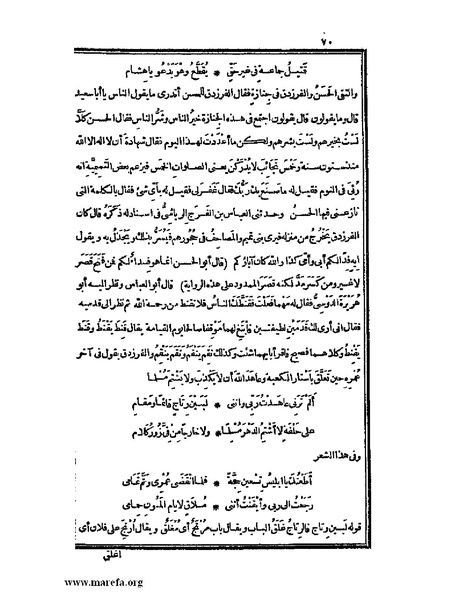 ٧٠
قتيل جاعة فى غير حق * يقطع وهو يدعو ياهشام
والتقى الحسن والفرزدق فى جنازة فقال الفرزدق للحسن أتدرى ما يقول الناس ياأباسعيد
قال وما يقولون قال يقولون اجتمع فى هذه الجنازة خير الناس وشر الناس فقال الحسن كلا
لست بخيرهم ولست بشرهم ولكن ما أعددت لهذا اليوم فقال شهادة أن لا اله الا الله
منذ ستون سنة وخمس نجائب لا يدركن يعنى الصلوات الخمس فيزعم بعض التميمية أنه
رئى فى النوم فقيل له ما صنع بك ربك فقال غفر لى فقيل له بأى شئ فقال بالكلمة التى
نازعنى فيها الحسن وحدثنى العباس بن الفرج الرياشى فى اسناد له ذكره قال كان
الفرزدق يخرج من منزله فيرى بنى تميم والمصاحف فى حجورهم فيسر بذلك ويجذل به و يقول
ايه فدا لكم أبى وأمى كذا والله كان آباؤكم (قال أبو الحسن انما هو فدا لكم فمن فتح قصر
لا غير ومن كسر مد لكنه قصر الممدود على هذه الرواية) قال أبو العباس ونظر اليه أبو
هريرة الدوسى فقال له مهما فعلت فقنطك الناس فلا تقنط من رحمة الله ثم نظر الى قدميه
فقال انى أرى لك قدمين لطيفتين فابتغ لهما موقفا صالحا يوم القيامة يقال قنط يقنط وقنط
يقنط وكلاهما فصيح فاقرأ بأيهما شئت وكذلك نقم ينقم ونقم ينقم والفرزدق يقول فى آخر
عمره حين تعلق بأستار الكعبة وعاهد الله أن لا يكذب ولا يشتم مسلما
ألم ترنى عاهدت ربى واننى * لبين رتاج قائما ومقام
على حلفة لا أشتم الدهر مسلما * ولا خارجا من فى زور كلام
وفى هذا الشعر
أطعتك يا ابليس تسعين حجة * فلما انقضى عمرى وتم تمامى
رجعت الى ربى وأيقنت أننى * ملاق لايام المنون حمامى
قوله لبين رتاج فالرتاج غلق الباب ويقال باب مرتج أى مغلق ويقال أرتج على فلان أى
اغلق
www.marefa.org